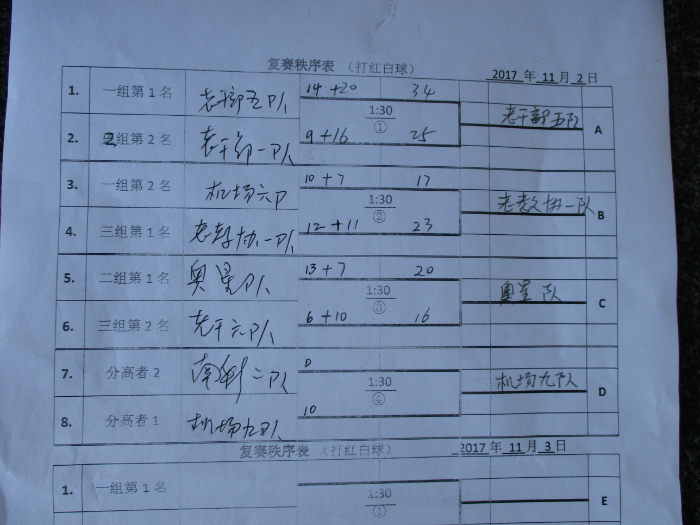 复赛秩序表 （打红白球） 2017 年 11 月 2 日
1. 一组第1名 老干部五队 14+20 34
1:30 ① 老干部五队 A
2. 2组第2名 老干部一队 9+16 25
3. 一组第2名 机场六队 10+7 17
1:30 ② 老教协一队 B
4. 三组第1名 老教协一队 12+11 23
5. 二组第1名 奥星队 13+7 20
1:30 ③ 奥星队 C
6. 三组第2名 老干六队 6+10 16
7. 分高者2 二队 0
1:30 ④ 机场九队 D
8. 分高者1 机场九队 10
复赛秩序表 （打红白球） 2017 年 11 月 3 日
1. 一组第1名
1:30 ① E